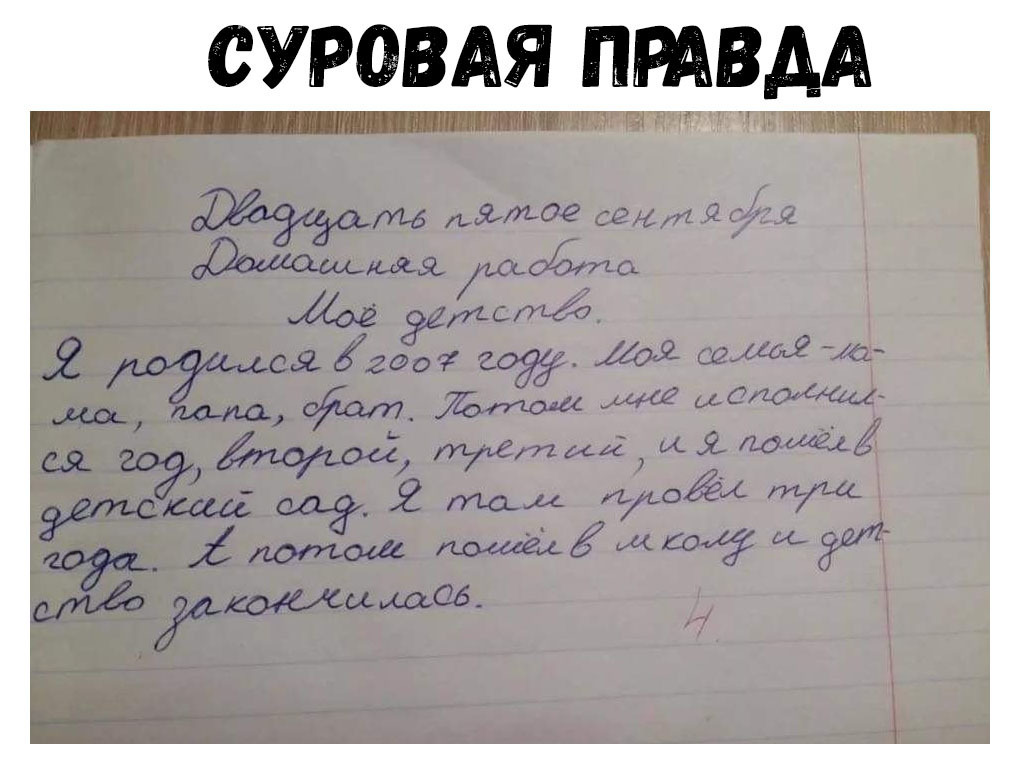 СУРОВАЯ ПРАВДА
Двадцать пятое сентября
Домашняя работа
Моё детство.
Я родился в 2007 году. Моя семья - ма-
ма, папа, брат. Потом мне исполнил-
ся год, второй, третий, и я пошёл в
детский сад. Я там провёл три
года. А потом пошёл в школу и дет-
ство закончилась.
4